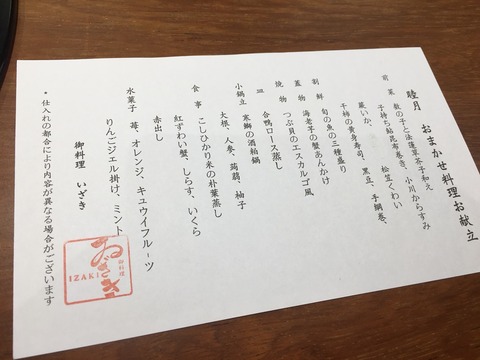 睦月　おまかせ料理お献立
前菜　数の子と法蓮草芥子和え、小川からすみ
子持ち鮎昆布巻き、松笠くわい
蕨いか、
干柿の黄身寿司、黒豆、手綱巻、
割鮮　旬の魚の三種盛り
蓋物　海老芋の蟹あんかけ
焼物　つぶ貝のエスカルゴ風
皿　合鴨ロース蒸し
小鍋立　寒鰤の酒粕鍋
大根、人参、蒟蒻、柚子
食事　こしひかり米の朴葉蒸し
紅ずわい蟹、しらす、いくら
赤出し
水菓子　苺、オレンジ、キュウイフルーツ
りんごジェル掛け、ミント
御料理　いざき
*仕入れの都合により内容が異なる場合がございます
御料理
ゐざき
IZAKI